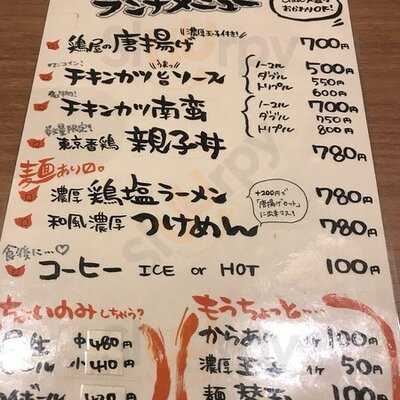 ランチメニュー
おかわりOK!
濃厚玉子付き!
鶏屋の唐揚げ 700円
うまっ
チキンカツ ソース ノーマル 500円
ダブル 550円
トリプル 600円
チキンカツ南蛮 ノーマル 700円
ダブル 750円
トリプル 800円
数量限定!
東京香鶏 親子丼 780円
麺あり〼。
濃厚 鶏塩ラーメン 780円
和風濃厚 つけめん 780円
+200円で
「唐揚げセット」
に出来マス!
食後に…♡
コーヒー ICE or HOT 100円
ちょいのみしちゃう?
生 中480円
ビール 小410円
もうちょっと…
からあげ 1ヶ 100円
濃厚玉子 1ヶ 50円
麺 替玉 100円